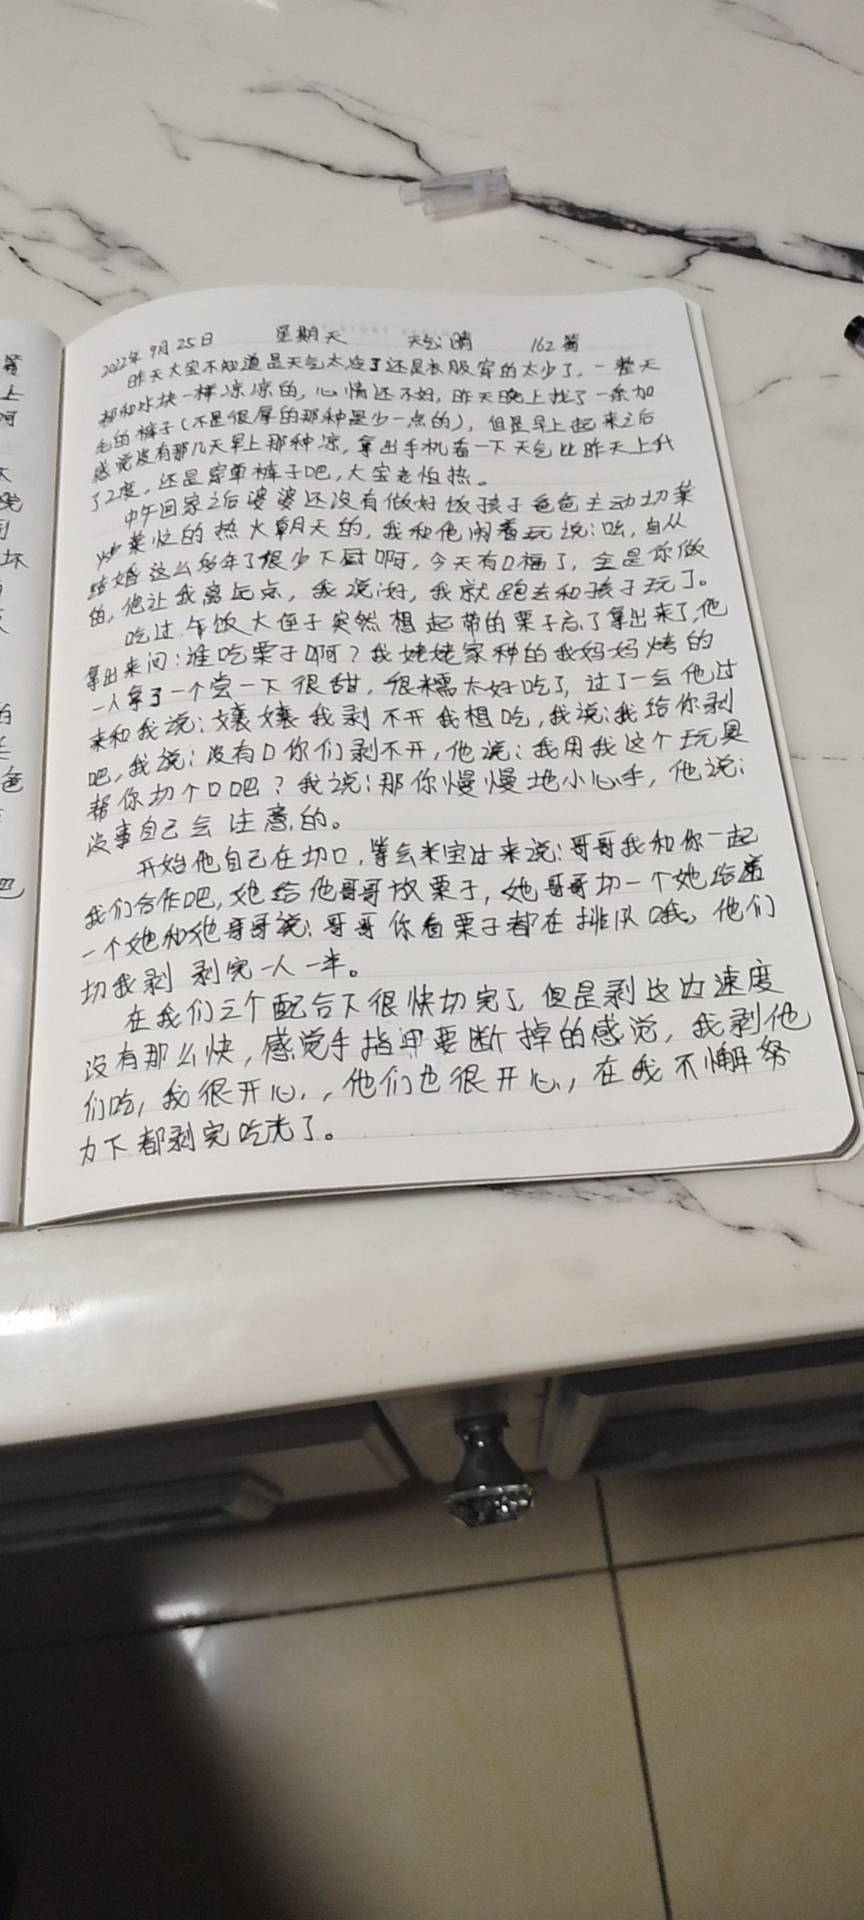 2022年9月25日 星期天 天气:晴 162篇
昨天大宝不知道是天气太冷了还是衣服穿的太少了，一整天
都和冰块一样凉凉的，心情还不好，昨天晚上找了一条加
毛的裤子(不是很厚的那种是少一点的)，但是早上起来之后
感觉没有那几天早上那种凉，拿出手机看一下天气比昨天上升
了2度，还是穿单裤子吧，大宝老怕热。
中午回家之后婆婆还没有做好饭孩子爸爸主动切菜
炒菜忙的热火朝天的，我和他闹着玩说:吆，自从
结婚这么多年了很少下厨啊，今天有口福了，全是你做
的，他让我离远点，我说:好，我就跑去和孩子玩了。
吃过午饭大侄子突然想起带的栗子忘了拿出来了，他
拿出来问:谁吃栗子啊?我姥姥家种的我妈妈烤的
一人拿了一个尝一下很甜，很糯太好吃了，过了一会他过
来和我说:嬢嬢我剥不开我想吃，我说:我给你剥
吧，我说:没有口你们剥不开，他说:我用我这个玩具
帮你切个口吧?我说:那你慢慢地小心手，他说:
没事自己会注意的。
开始他自己在切口，等会米宝过来说:哥哥我和你一起
我们合作吧，她给他哥哥放栗子，她哥哥切一个她给递
一个她和他哥哥说:哥哥你看栗子都在排队哦，他们
切我剥 剥完一人一半。
在我们三个配合下很快切完了，但是剥这边速度
没有那么快，感觉手指甲要断掉的感觉，我剥他
们吃，我很开心，，他们也很开心，在我不懈努
力下都剥完吃光了。